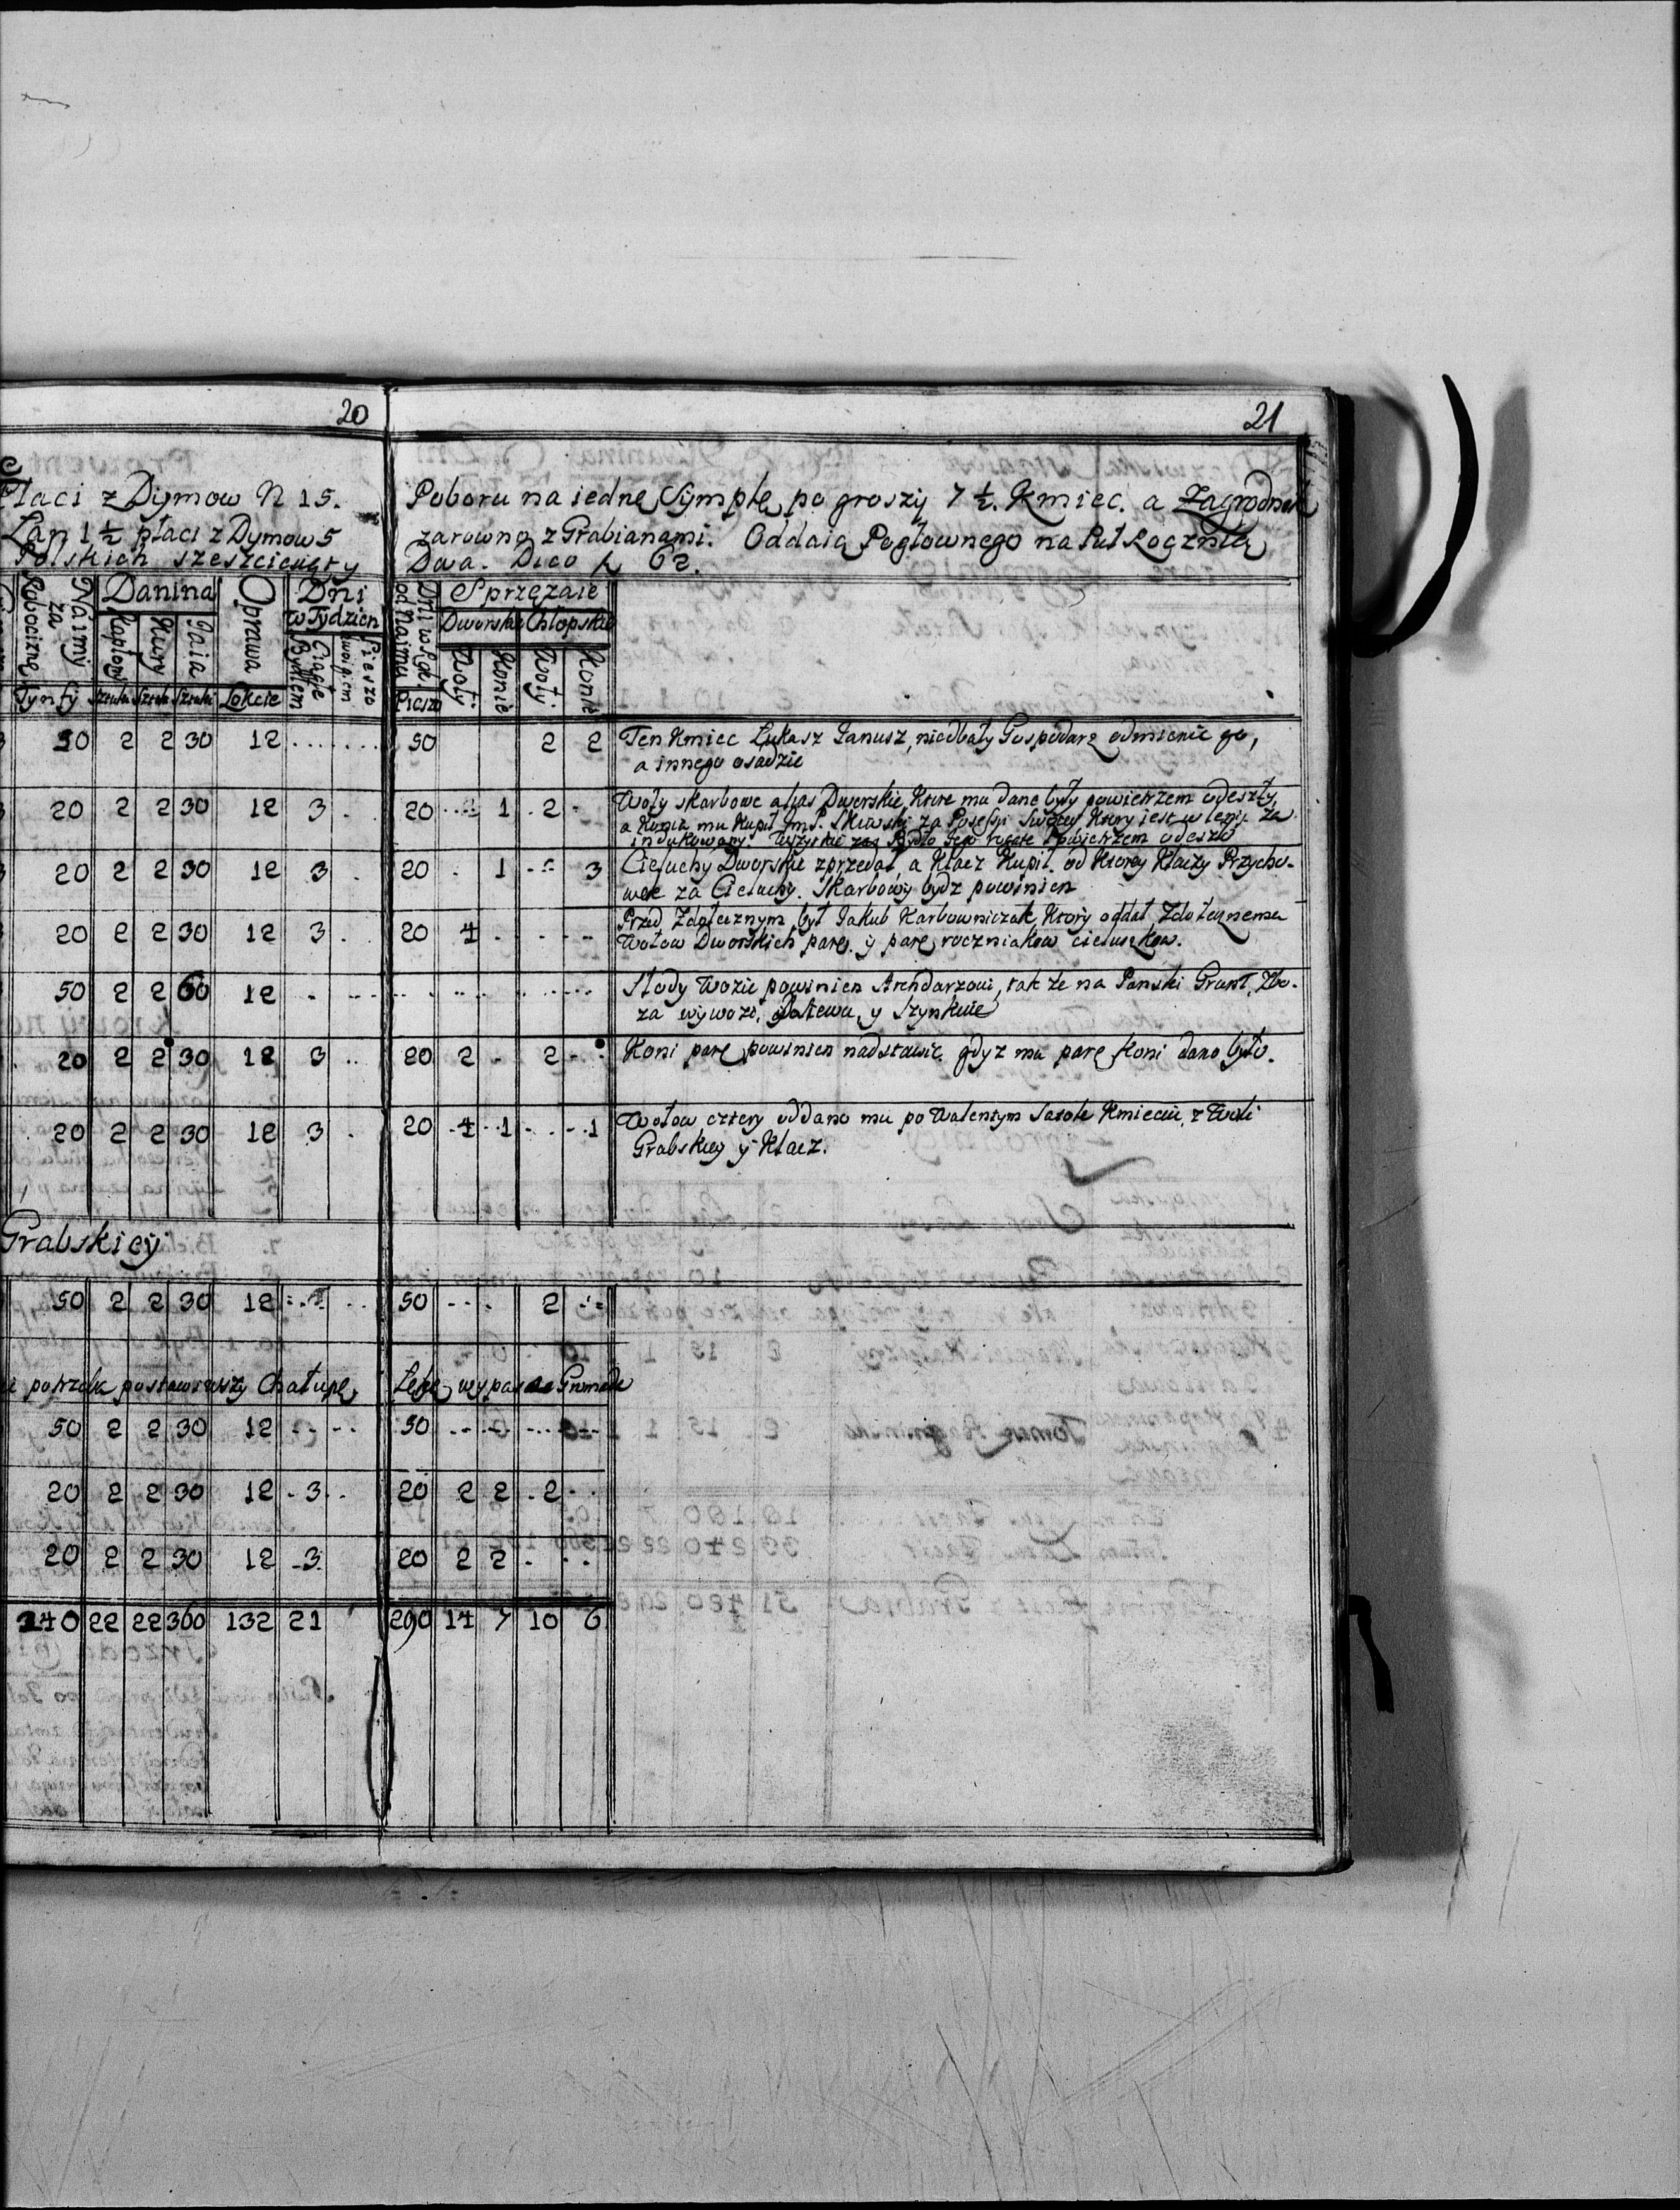 20
21
Płaci z Dymow N 15.
Poboru na iednę Symplę po groszy 7 ½. Kmiec. a Zagrodnik
Łan 1 ½ płaci z Dymow 5
zarowno z Grabianami. Oddaią Pogłownego na Puł Rocznię
Polskich szescienęty
Dwa. Dico 62.
Robociznę
Naimy za
Danina
Kapłony
Kury
Iaia
Oprawa
Dni w Tydzien
Ciągłe Bydłem
Pieszo
Dni w Rok od Naimu
Sprzęzaie
Dworskie Chłopskie
Woły
Konie
Woły
Konie
Tynfy Sztuki Sztuki Sztuki Łokcie Pieszo
50 2 2 30 12 50 2 2 Ten Kmiec Łukasz Ianusz, niedbały Gospodarz odmienic go,
a innego osadzic
20 2 2 30 12 3 20 1 2 Woły skarbowe alias Dworskie, Ktore mu dane były powietrzem odeszły,
a Konia mu Kupił Jm P. za Possessyi Ktory iest
indukowany. Wszystkie zas Bydło tego powietrzem odeszło
20 2 2 30 12 3 20 1 3 Cieluchy Dworskie zprzedał, a Klacz Kupił. od Ktorey Klaczy Przycho-
wek za Cieluchy. Skarbowy bydz powinien
20 2 2 30 12 3 20 4 Przed Zdołecznym był Iakub Karbowniczak, Ktory oddał Zdołecznemu
Wołow Dworskich parę. y parę roczniakow cieluszkow.
50 2 2 60 12 Słody Wozic powinien Arendarzowi, tak ze na Panski Grunt, Zbo-
za wywozi, y Szynkuie
20 2 2 30 12 3 20 2 2 Koni parę powinien nadstawic gdyz mu parę Koni dano było.
20 2 2 30 12 3 20 4 1 1 Wołow cztery oddano mu po Walentym Kmieciu, z Woli
Grabskiey y Klacz.
Grabskiey
50 2 2 30 12 50 2
potrzeba postawiwszy Chałupę,
50 2 2 30 12 50
20 2 2 30 12 3 20 2 2 2
20 2 2 30 12 3 20 2 2
340 22 22 360 132 21 290 14 7 10 6